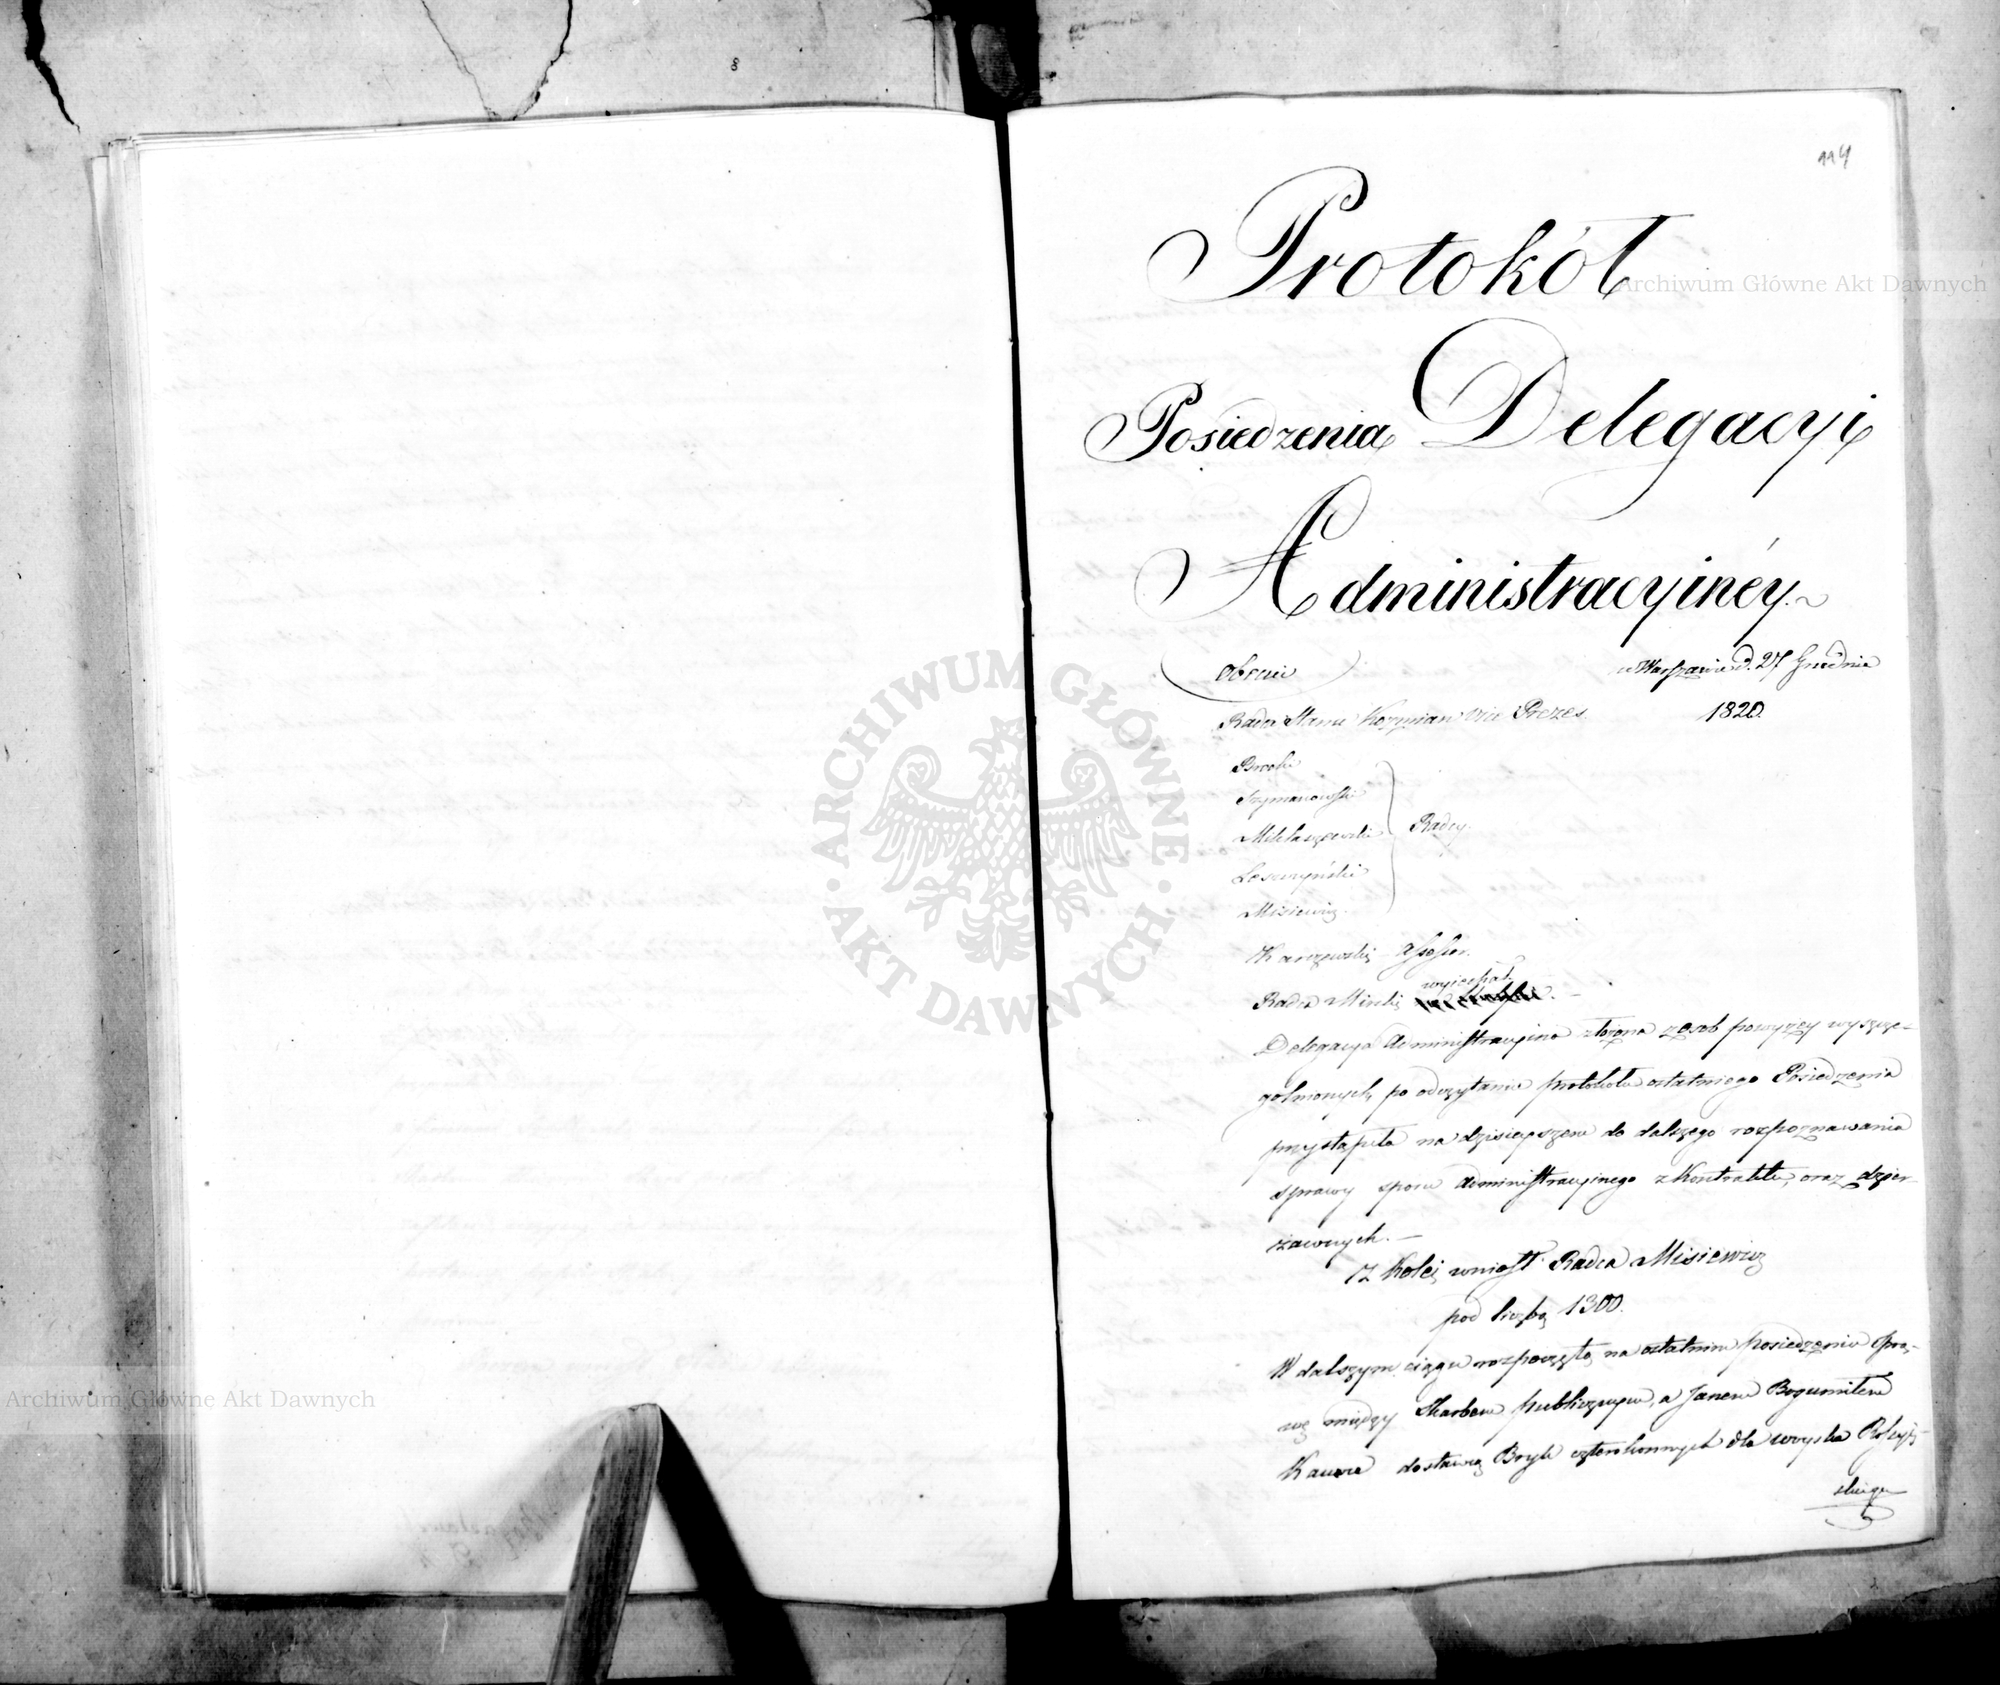 114
Protokół
Posiedzenia Delegacyi
Administracyinéy.
Obecni
w Warszawie d. 27 Grudnia
1820.
Radca Stanu Kozmian Vice Prezes
Brocki
Szymanowski
Miklaszewski
Radcy.
Leszczyński
Misiewicz.
Karczewski Assessor.
wyjechał
Radca Mirski
Delegacya Administracyina złożona z osob powyzey wyszcze-
golnionych, po odczytaniu protokołu ostatniego Posiedzenia
przystąpiła na dzisieyszem do dalszego rozpoznawania
sprawy sporu Administracyinego z Kontraktu, oraz dzier-
żawnych. —
Z Kolei wniosł Radca Misiewicz
pod liczbą 1300.
W dalszym ciągu rozpoczętą na ostatnim posiedzeniu spra-
wę między Skarbem publicznym, a Janem Bogumiłem
dostawcą Bryk czterokonnych dla woyska Rossyi-
skiego
Archiwum Główne Akt Dawnych
ARCHIWUM GŁÓWNE
AKT DAWNYCH
Archiwum Główne Akt Dawnych